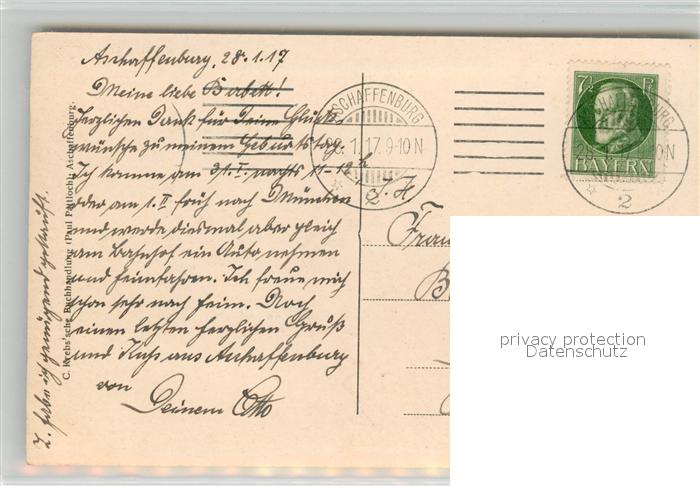 Aschaffenburg, 28.1.17
Meine liebe Babett!
Herzlichen Dank für Deine Glück-
wünsche zu meinem Geburtstag.
Ich komme am 31.I. nachts 11-12 h
oder am 1.II früh nach München
und werde diesmal aber gleich
am Bahnhof ein Auto nehmen
und heimfahren. Ich freue mich
schon sehr nach heim. Noch
einen letzten herzlichen Gruß
und Kuß aus Aschaffenburg
von
Deinem Otto
habe ich genügend gekauft.
C. Krebs'sche Buchhandlung (Paul Pattloch), Aschaffenburg.
ASCHAFFENBURG
1.17.9-10N
2
7½ PF
BAYERN
2
Frau
privacy protection
Datenschutz